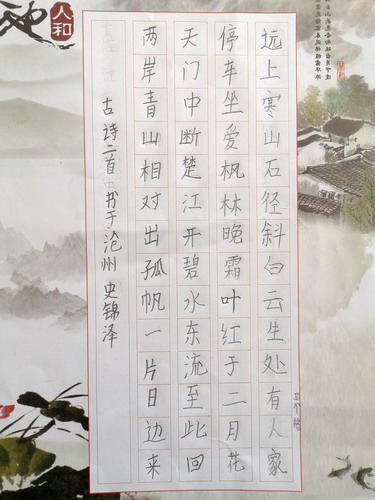 远上寒山石径斜白云生处有人家
停车坐爱枫林晚霜叶红于二月花
天门中断楚江开碧水东流至此回
两岸青山相对出孤帆一片日边来
古诗二首书于沧州 史锦泽
人和